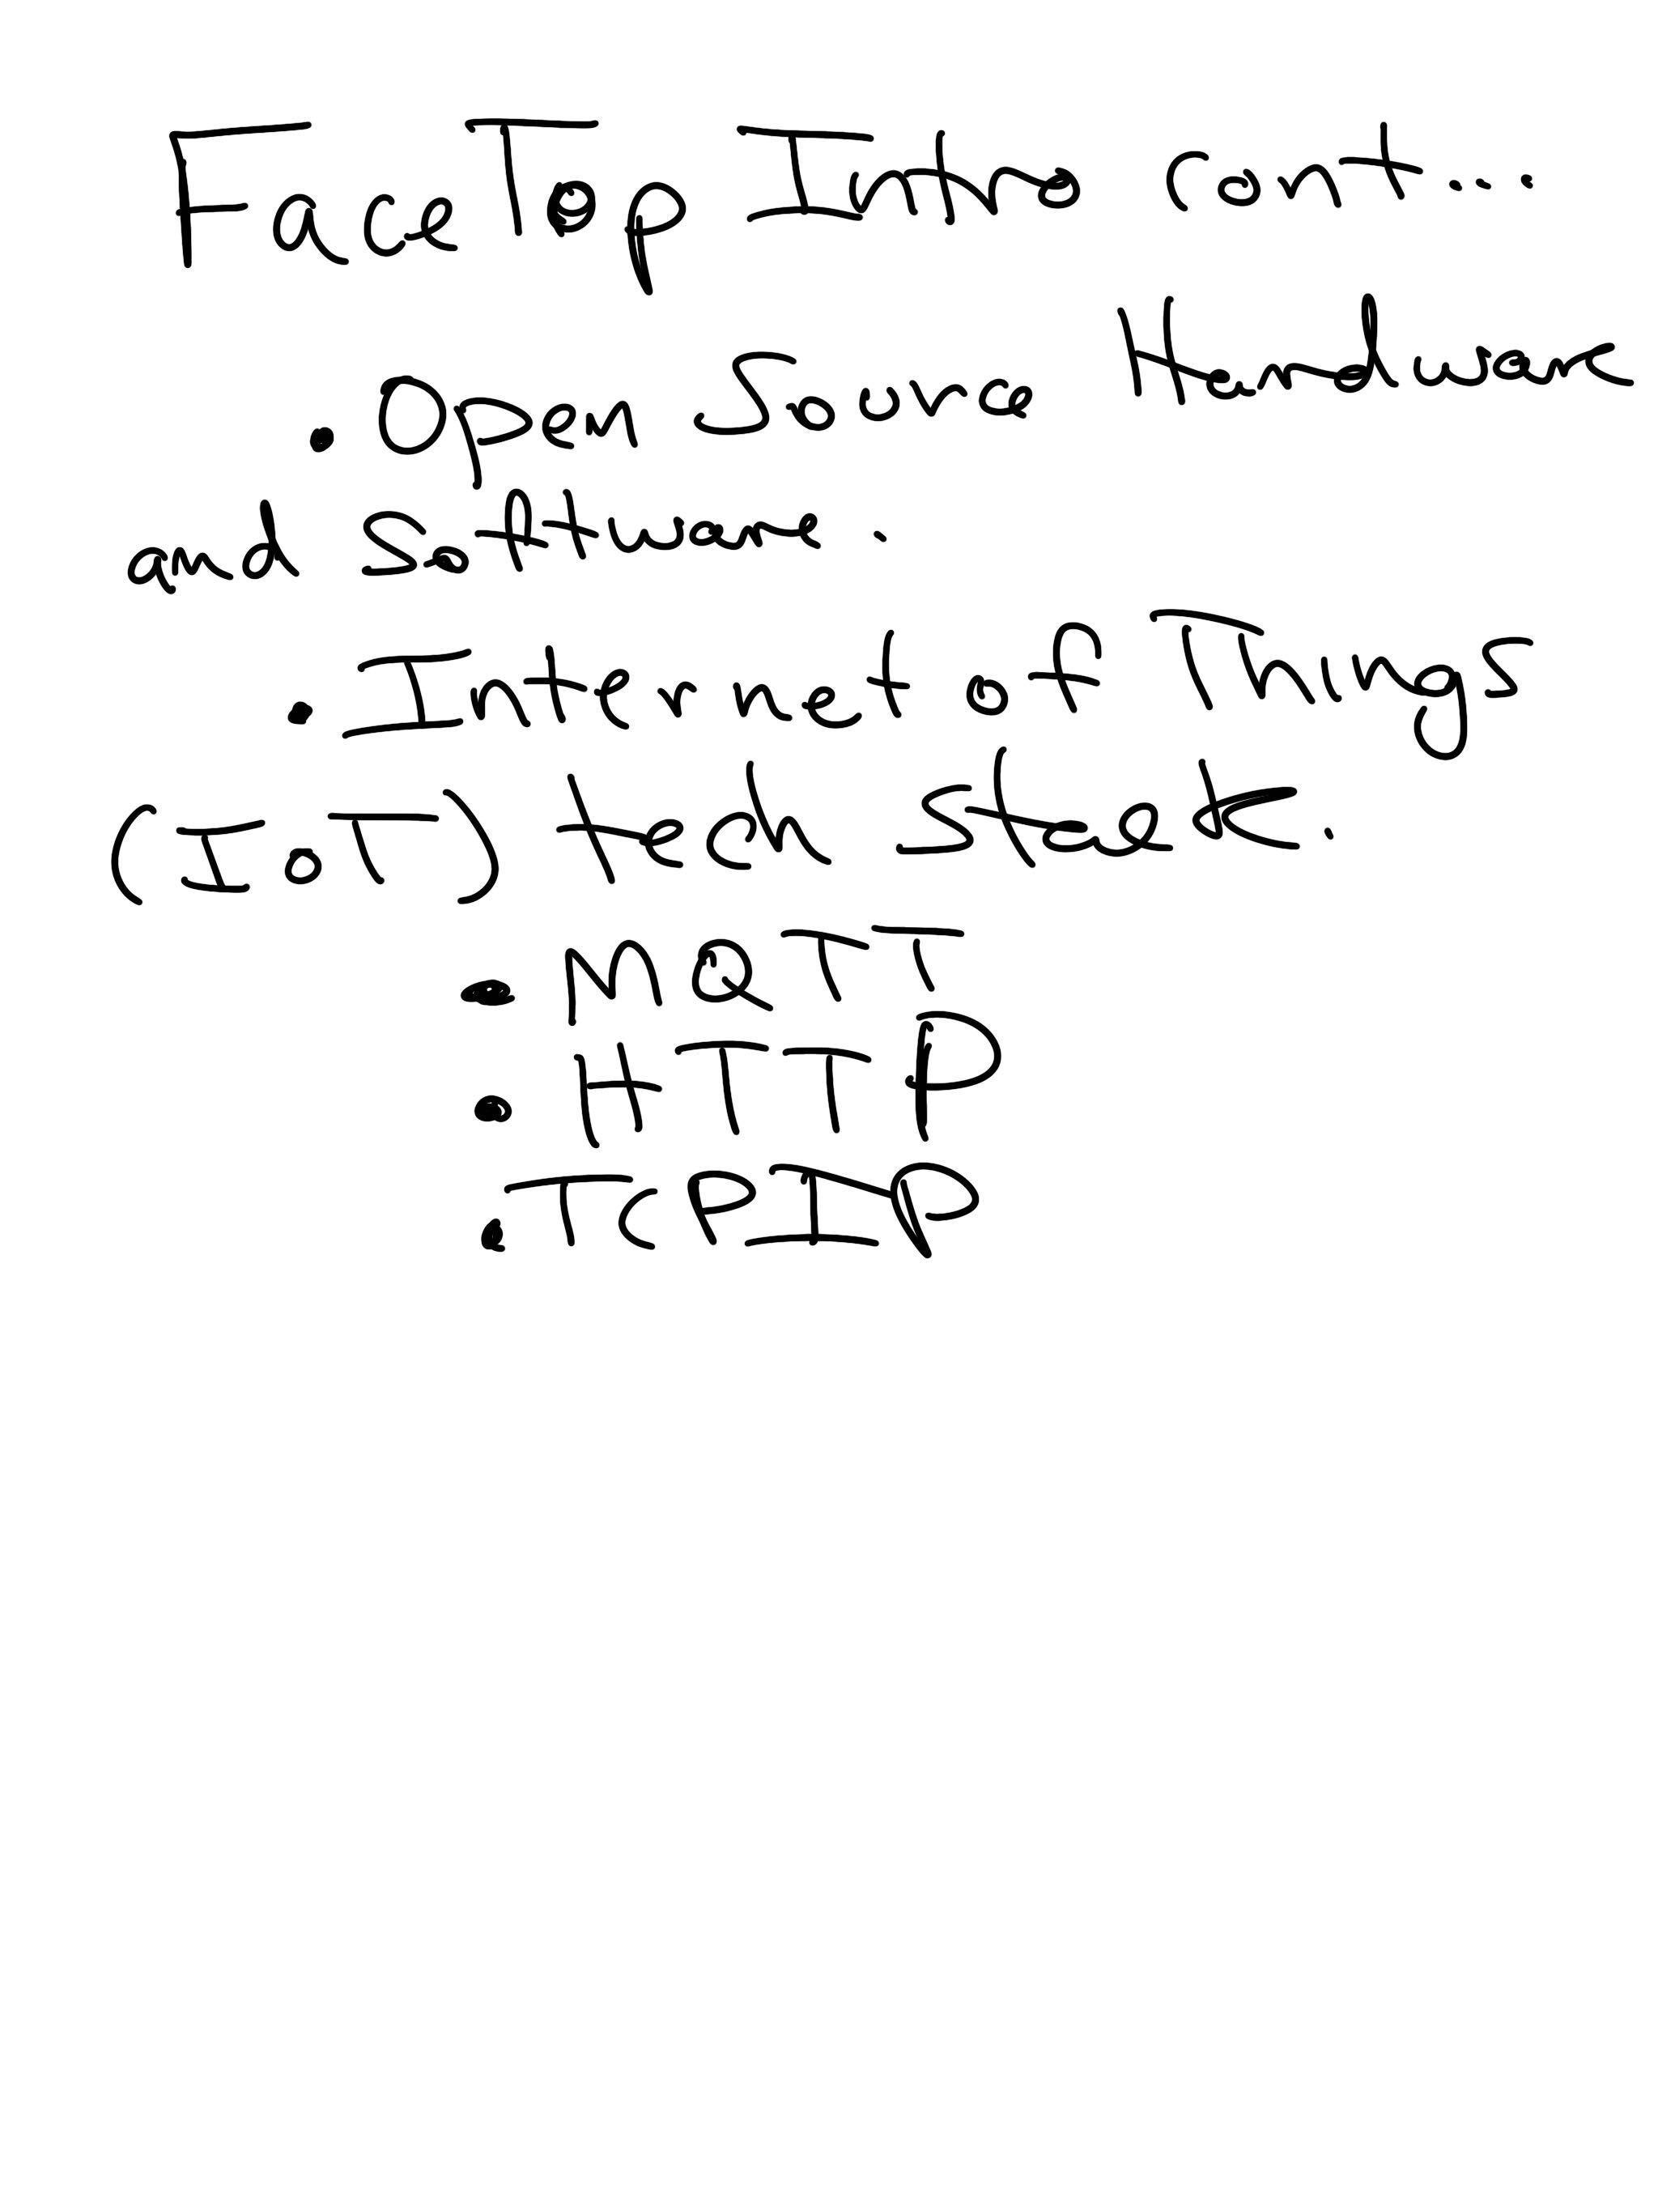 FaceTop Intro cont...
• Open Source Hardware
and Software.
• Internet of Things
(IoT) tech stack.
• MQTT
• HTTP
• TCPIP